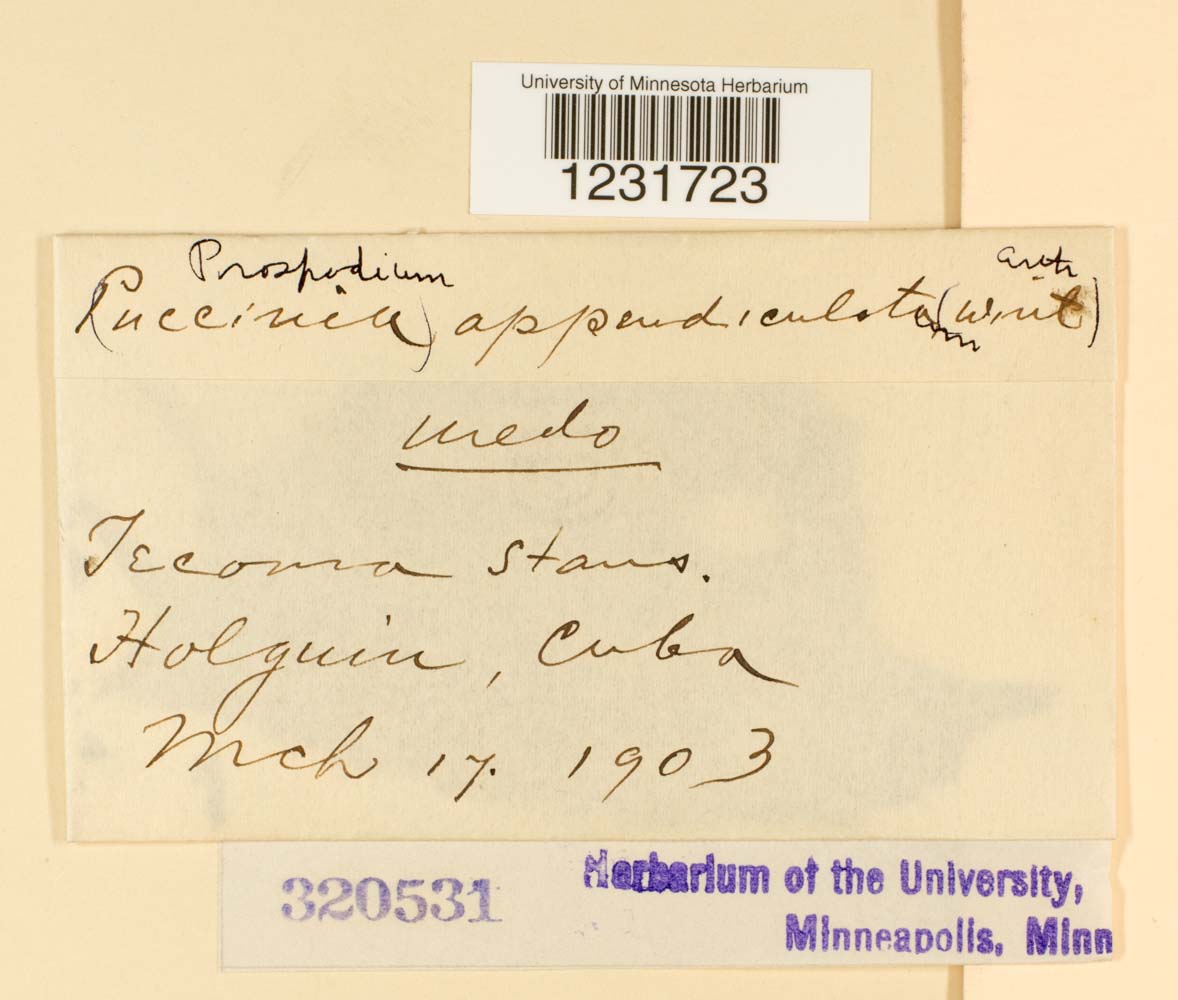 University of Minnesota Herbarium
1231723
Prospodium Arth
(Puccinia) appendiculata um (Wint)
uredo
Tecoma stans.
Holguin, Cuba
Mch 17. 1903
320531
Herbarium of the University,
Minneapolis, Minn